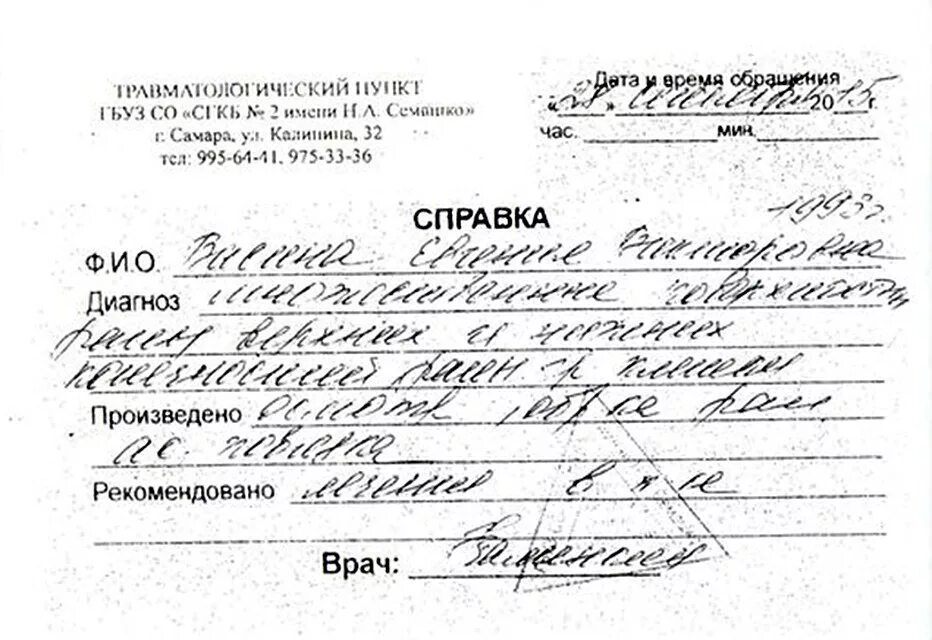 ТРАВМАТОЛОГИЧЕСКИЙ ПУНКТ
ГБУЗ СО «СГКБ № 2 имени Н.А. Семашко»
г. Самара, ул. Калинина, 32
тел: 995-64-41, 975-33-36
Дата и время обращения
«28» сентября 2015г.
час. мин.
СПРАВКА
1993г.
Ф.И.О. Васина Евгения Викторовна
Диагноз множественные
раны верхних и нижних
конечностей, раны
Произведено осмотр, ран
ас. повязка
Рекомендовано лечение в
Врач: